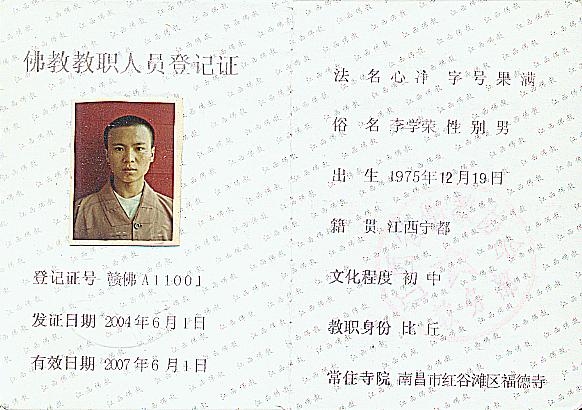 佛教教职人员登记证
登记证号 赣佛A11001
发证日期 2004年6月1日
有效日期 2007年6月1日
法 名 心 洋 字 号 果 满
俗 名 李学荣 性 别 男
出 生 1975年12月19日
籍 贯 江西宁都
文化程度 初 中
教职身份 比 丘
常住寺院 南昌市红谷滩区福德寺